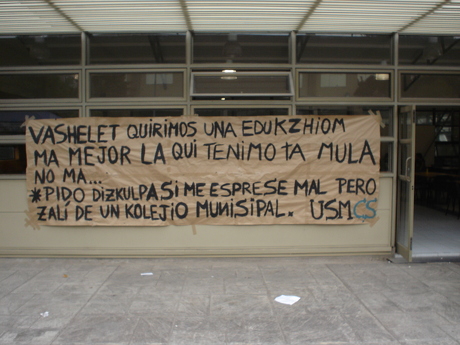 VASHELET QUIRIMOS UNA EDUKZHIOM
MA MEJOR LA QUI TENIMO TA MULA
NO MA...
*PIDO DIZKULPA SI ME ESPRESE MAL PERO
ZALI DE UN KOLEJIO MUNISIPAL. USMCS